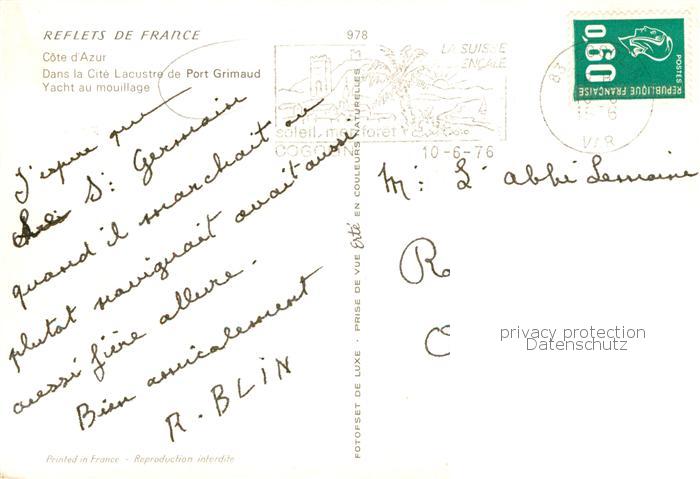 REFLETS DE FRANCE
978
Côte d'Azur
Dans la Cité Lacustre de Port Grimaud
Yacht au mouillage
LA SUISSE
ENÇALE
soleil mer foret
COGOLIN 10-6-76
83
VAR
0,60
POSTES
REPUBLIQUE FRANÇAISE
J'espère que
St Germain
quand il marchait ou
plutot naviguait avait aussi
aussi fière allure.
Bien amicalement
R. BLIN
Mr L'abbé Lemoine
R
C
privacy protection
Datenschutz
FOTOFSET DE LUXE - PRISE DE VUE Erté EN COULEURS NATURELLES
Printed in France - Reproduction interdite